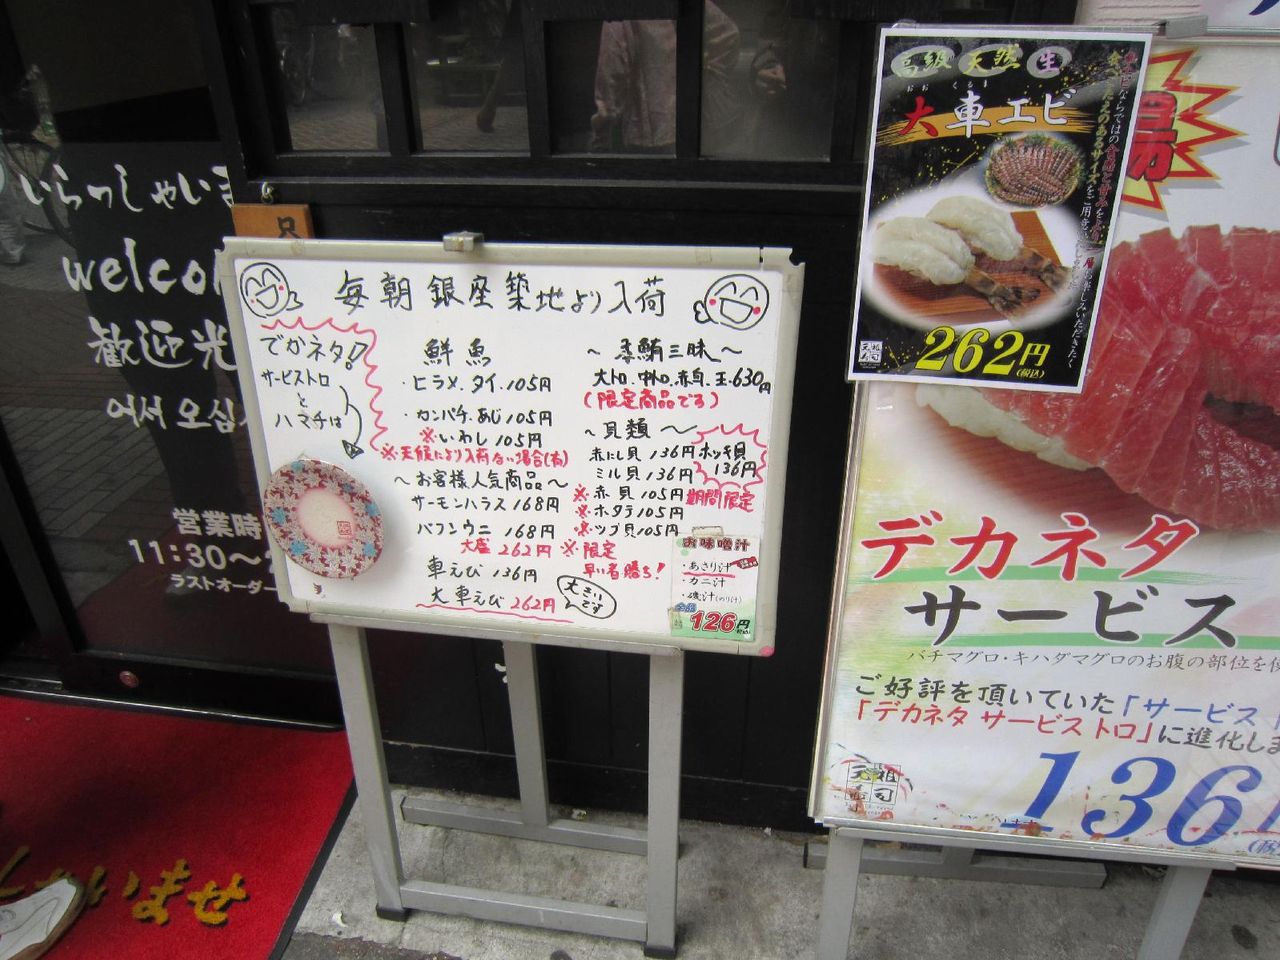 いらっしゃいま
welco
歓迎光
어서 오십
営業時
11:30～
ラストオーダー
毎朝銀座築地より入荷
でかネタ!
サービストロ
と
ハマチは
鮮魚
・ヒラメ.タイ.105円
・カンパチ.あじ105円
※いわし105円
※天候により入荷ない場合(有)
～お客様人気商品～
サーモンハラス168円
バフンウニ168円
大盛262円
車えび136円
大車えび262円
大きいです
鮪三昧～
大トロ.中トロ.赤身.玉.630円
(限定商品でる)
～貝類～
赤にし貝136円
ミル貝136円
※赤貝105円
※ホタテ105円
※ツブ貝105円
ホッキ貝
136円
期間限定
※限定
早い者勝ち!
お味噌汁
・あさり汁
・カニ汁
・磯汁(のり汁)
126円
高級天然生
おおくるま
大車エビ
262円
(税込)
元祖寿司
デカネタ
サービス
バチマグロ・キハダマグロのお腹の部位を使
ご好評を頂いていた「サービス
「デカネタ サービストロ」に進化しま
元祖寿司
136
せいませ